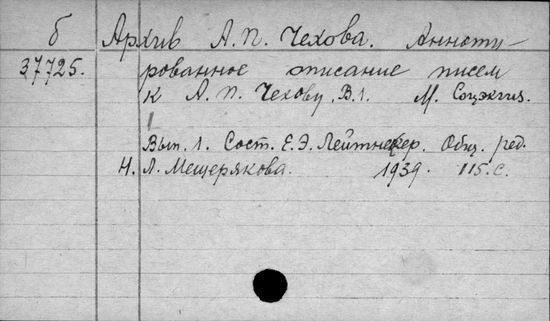 б Архив А.П. Чехова. Анноти-
37725. рованное описание писем
к А.П. Чехову, В.1. М. Соцэкгиз.
Вып. 1. Сост. Е.Э. Лейтнекер. Общ. ред.
Н.Л. Мещерякова. 1939. 115 с.